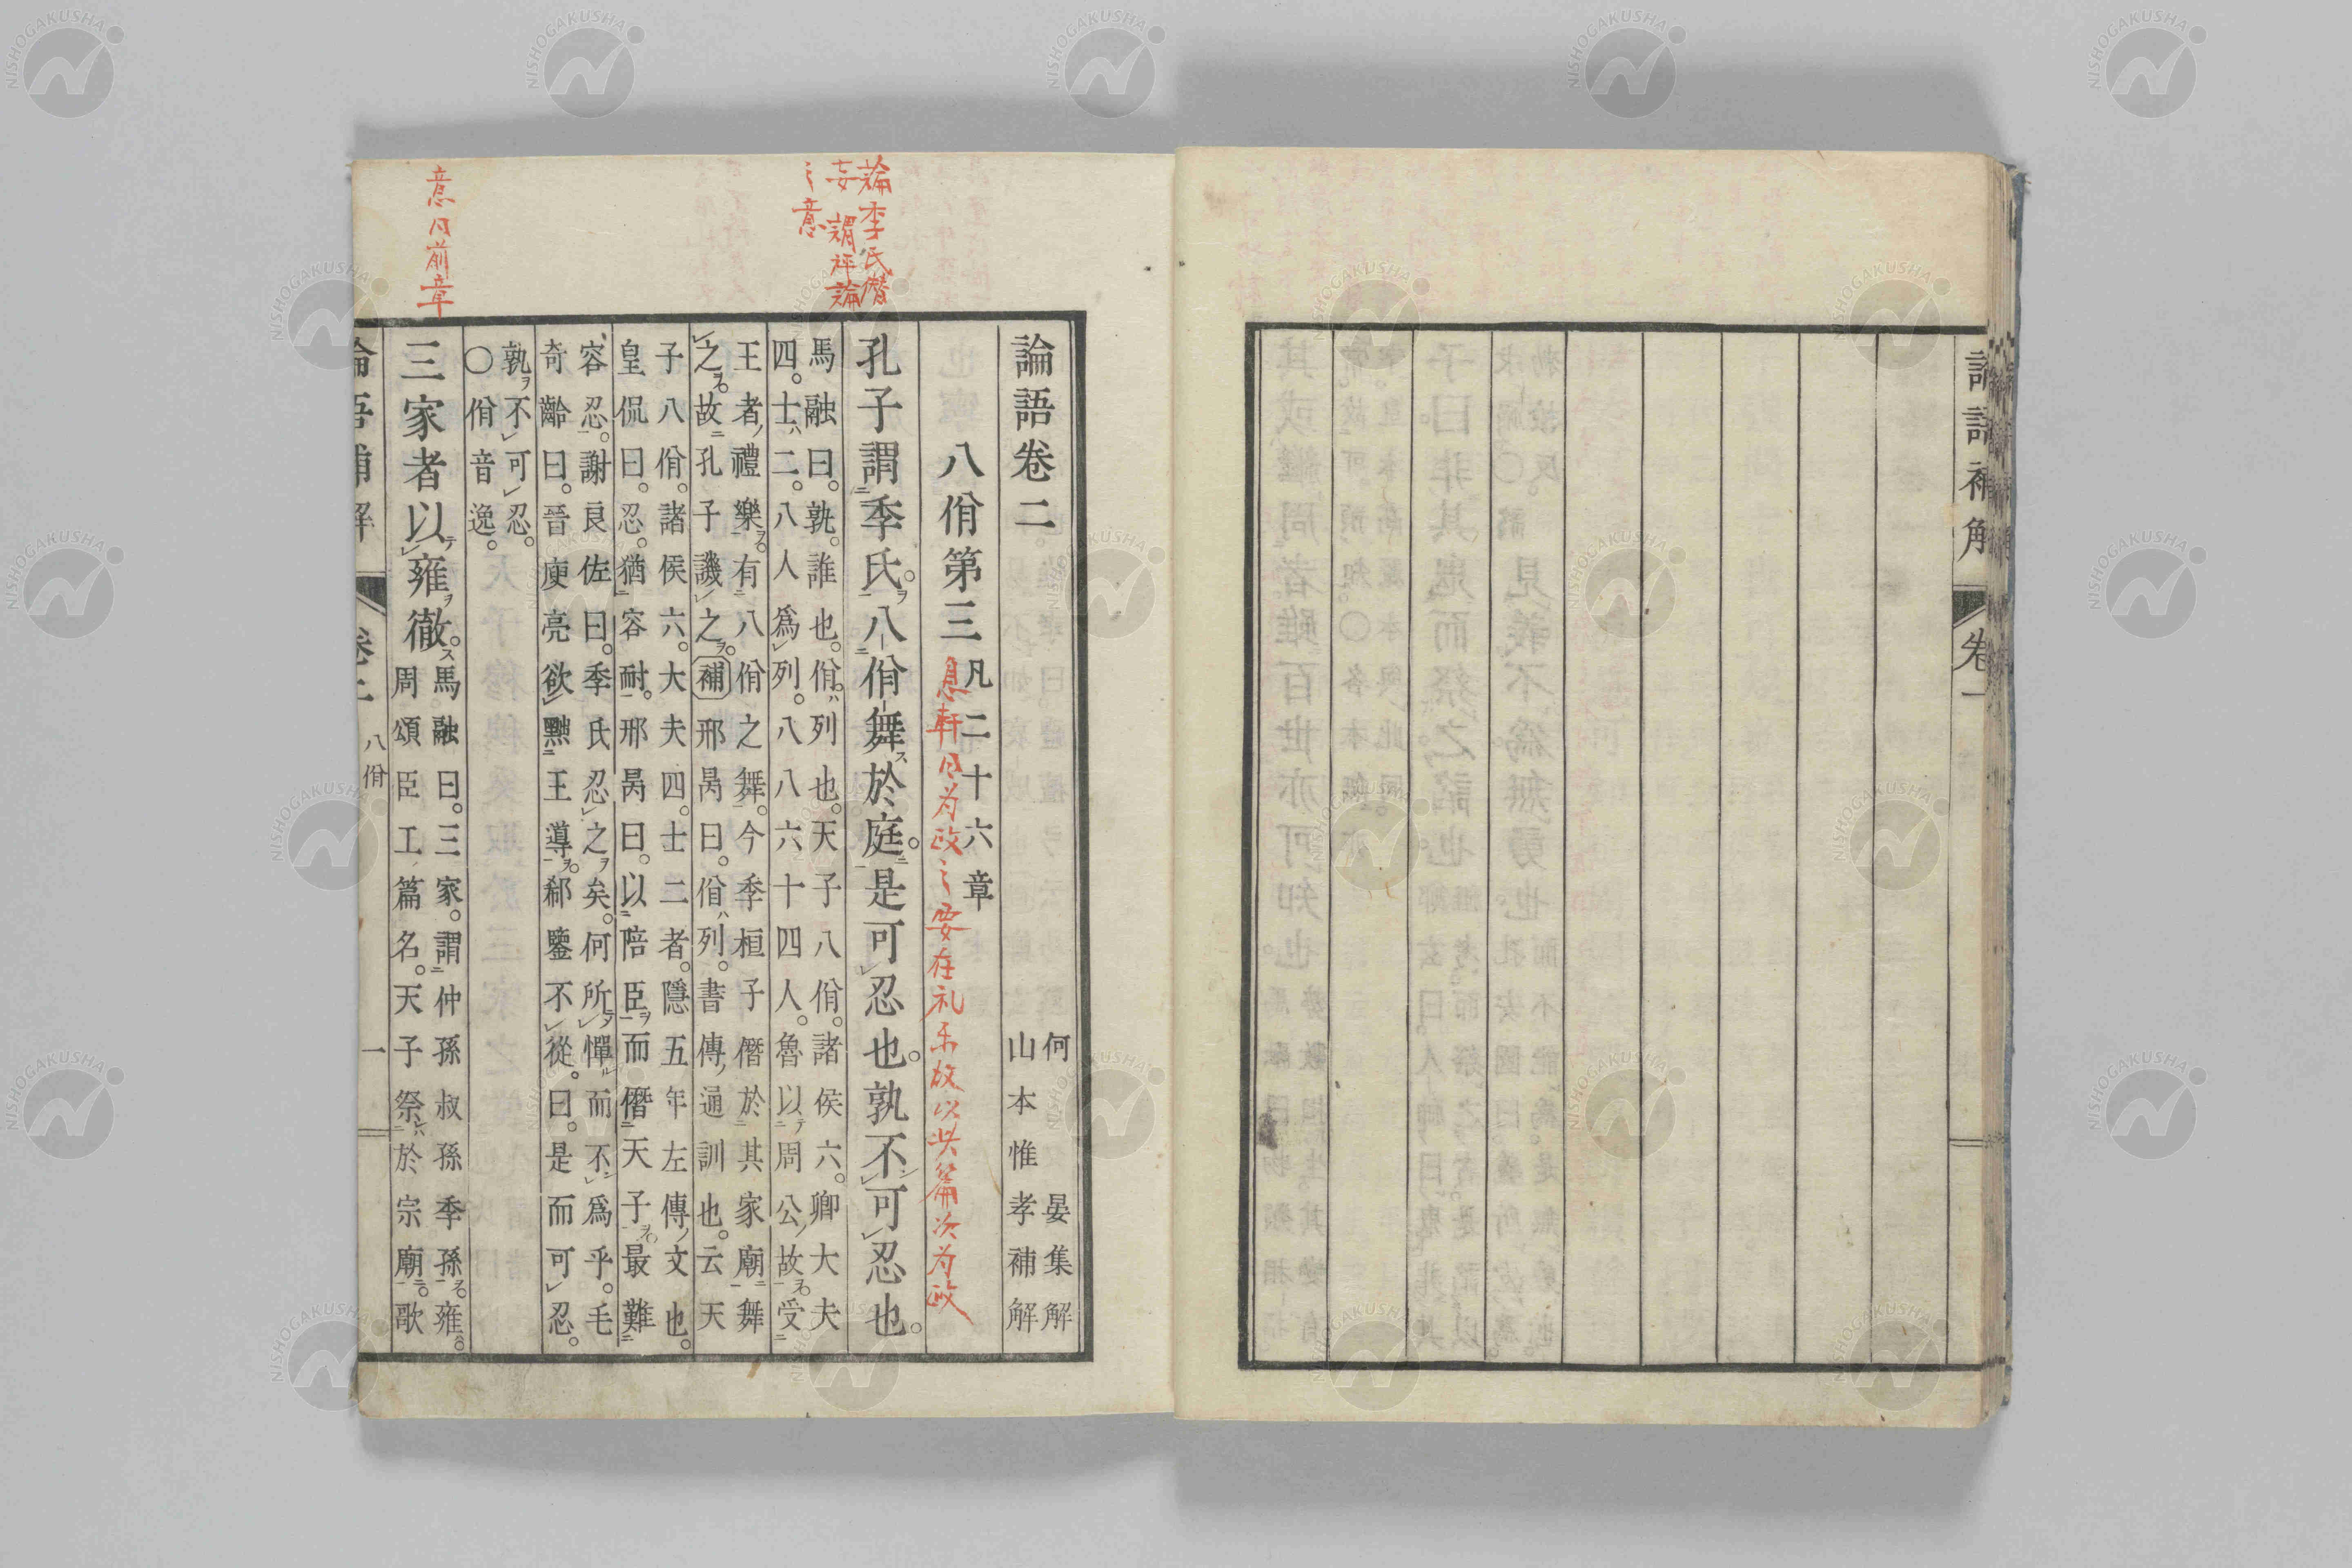 論語補解
卷一
論語卷二
何晏集解
山本惟孝補解
八佾第三凡二十六章
息軒曰为政之要在礼乐故以此篇次为政
孔子謂季氏。八佾舞於庭。是可忍也。孰不可忍也。
馬融曰。孰。誰也。佾。列也。天子八佾。諸侯六。卿大夫
四。士二。八人爲列。八八六十四人。魯以周公故受
王者禮樂。有八佾之舞。今季桓子僭於其家廟舞
之。故孔子譏之。補邢昺曰。佾列。書傳通訓也。云天
子八佾。諸侯六。大夫四。士二者。隱五年左傳文也。
皇侃曰。忍。猶容耐。邢昺曰。以陪臣而僭天子。最難
容忍。謝良佐曰。季氏忍之矣。何所憚而不爲乎。毛
奇齡曰。晉庾亮欲黜王導。郗鑒不從。曰。是而可忍。
孰不可忍。
〇佾音逸。
三家者以雍徹。
馬融曰。三家。謂仲孫叔孫季孫。雍。
周頌臣工篇名。天子祭於宗廟。歌
論語補解
卷二
八佾
一
論季氏僭
妄 謂評論
之意
意同前章
NISHOGAKUSHA